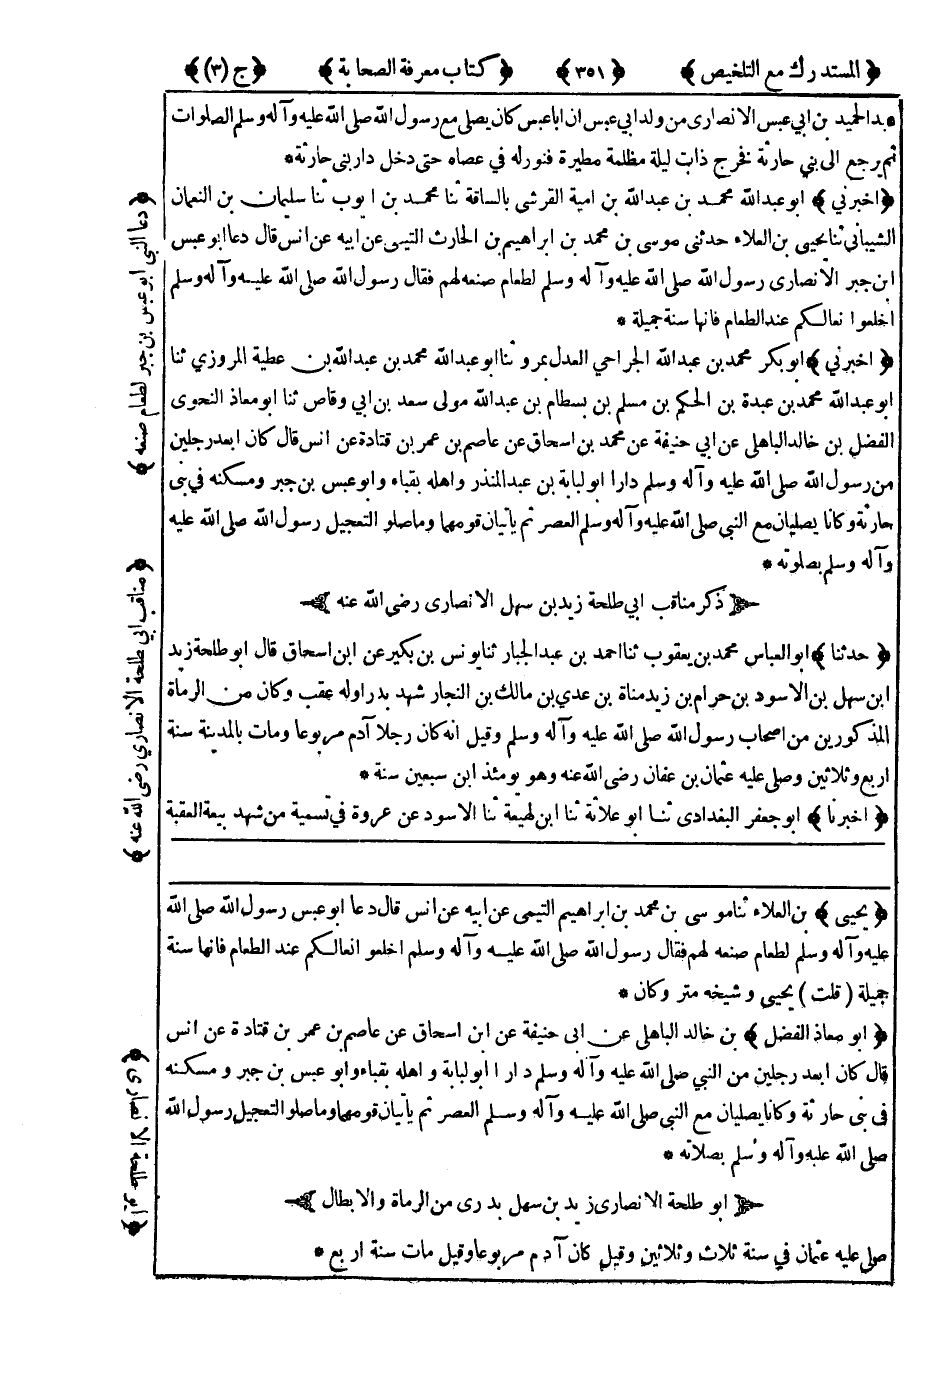 ﴿المستدرك مع التلخيص﴾ ﴿٣٥١﴾ ﴿كتاب معرفة الصحابة﴾ ﴿ج (٣)﴾
عبدالحميد بن ابي عبس الانصارى من ولد ابي عبس ان اباعبس كان يصلي مع رسول الله صلى الله عليه وآله وسلم الصلوات
ثم يرجع الى بني حارثة فخرج ذات ليلة مظلمة مطيرة فنورله في عصاه حتى دخل دار بنى حارثة *
﴿اخبرني﴾ ابوعبدالله محمد بن عبدالله بن امية القرشى بالساقة ثنا محمد بن ايوب ثنا سليمان بن النعمان
الشيباني ثنا يحيى بن العلاء حدثنى موسى بن محمد بن ابراهيم بن الحارث التيمى عن ابيه عن انس قال دعا ابوعبس
ابن جبر الانصارى رسول الله صلى الله عليه وآله وسلم لطعام صنعه لهم فقال رسول الله صلى الله عليه وآله وسلم
اخلعوا نعالكم عند الطعام فانها سنة جميلة *
﴿اخبرني﴾ ابوبكر محمد بن عبدالله الجراحي العدل بمرو ثنا ابوعبدالله محمد بن عبدالله بن عطية المروزي ثنا
ابوعبدالله محمد بن عبدة بن الحكم بن مسلم بن بسطام بن عبدالله مولى سعد بن ابي وقاص ثنا ابومعاذ النحوى
الفضل بن خالد الباهلى عن ابي حنيفة عن محمد بن اسحاق عن عاصم بن عمر بن قتادة عن انس قال كان ابعد رجلين
من رسول الله صلى الله عليه وآله وسلم دارا ابولبابة بن عبدالمنذر واهله بقباء وابوعبس بن جبر ومسكنه في بنى
حارثة وكانا يصليان مع النبي صلى الله عليه وآله وسلم العصر ثم يأتيان قومهما وماصلوا لتعجيل رسول الله صلى الله عليه
وآله وسلم بصلوته *
﴿ذكر مناقب ابي طلحة زيد بن سهل الانصارى رضى الله عنه﴾
﴿حدثنا﴾ ابوالعباس محمد بن يعقوب ثنا احمد بن عبدالجبار ثنا يونس بن بكير عن ابن اسحاق قال ابوطلحة زيد
ابن سهل بن الاسود بن حرام بن زيد مناة بن عدي بن مالك بن النجار شهد بدرا وله عقب وكان من الرماة
المذكورين من اصحاب رسول الله صلى الله عليه وآله وسلم وقيل انه كان رجلا آدم مربوعا ومات بالمدينة سنة
اربع وثلاثين وصلى عليه عثمان بن عفان رضى الله عنه وهو يومئذ ابن سبعين سنة *
﴿اخبرنا﴾ ابوجعفر البغدادى ثنا ابوعلاثة ثنا ابن لهيعة ثنا الاسود عن عروة في تسمية من شهد بيعة العقبة
﴿يحيى﴾ بن العلاء ثنا موسى بن محمد بن ابراهيم التيمى عن ابيه عن انس قال دعا ابوعبس رسول الله صلى الله
عليه وآله وسلم لطعام صنعه لهم فقال رسول الله صلى الله عليه وآله وسلم اخلعوا نعالكم عند الطعام فانها سنة
جميلة (قلت) يحيى وشيخه متروكان *
﴿ابو معاذ الفضل﴾ بن خالد الباهلى عن ابى حنيفة عن ابن اسحاق عن عاصم بن عمر بن قتادة عن انس
قال كان ابعد رجلين من النبي صلى الله عليه وآله وسلم دارا ابولبابة واهله بقباء وابو عبس بن جبر ومسكنه
فى بنى حارثة وكانا يصليان مع النبي صلى الله عليه وآله وسلم العصر ثم يأتيان قومهما وماصلوا لتعجيل رسول الله
صلى الله عليه وآله وسلم بصلاته *
﴿ابو طلحة الانصارى زيد بن سهل بدرى من الرماة والابطال﴾
صلى عليه عثمان في سنة ثلاث وثلاثين وقيل كان آدم مربوعا وقيل مات سنة اربع *
﴿دعا النبي ابوعبس بن جبر لطعام صنعه﴾
﴿مناقب ابي طلحة الانصاري رضى الله عنه﴾
﴿ابوطلحة الانصارى﴾